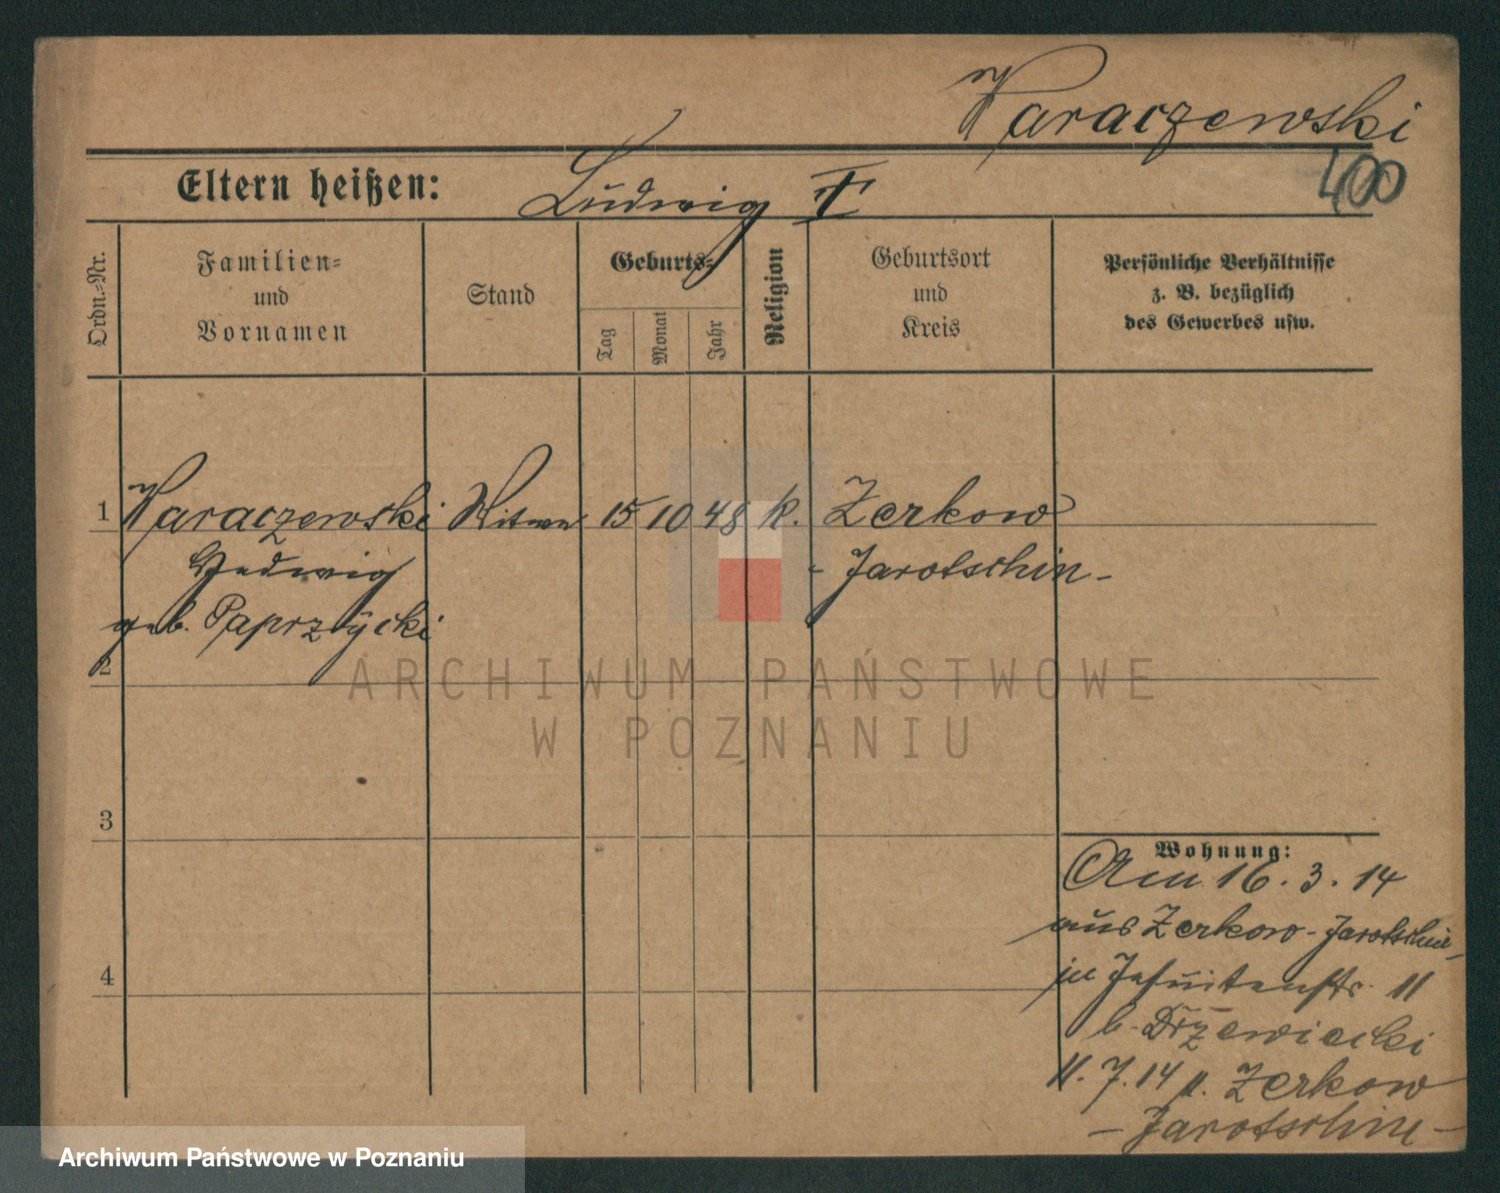 Karaczewski
400
Eltern heißen: Ludwig †
Ordn.-Nr.
Familien-
und
Vornamen
Stand
Geburts-
Tag
Monat
Jahr
Religion
Geburtsort
und
Kreis
Persönliche Verhältnisse
z. B. bezüglich
des Gewerbes usw.
1 Karaczewski Witwe 15 10 48 k. Zerkow
Hedwig - Jarotschin -
geb. Paprzycki
2
ARCHIWUM PAŃSTWOWE
W POZNANIU
3
Wohnung:
Am 16. 3. 14
aus Zerkow - Jarotschin
in Jesuitenstr. 11
4
b. Drzewiecki
11. 7. 14 n. Zerkow
- Jarotschin -
Archiwum Państwowe w Poznaniu